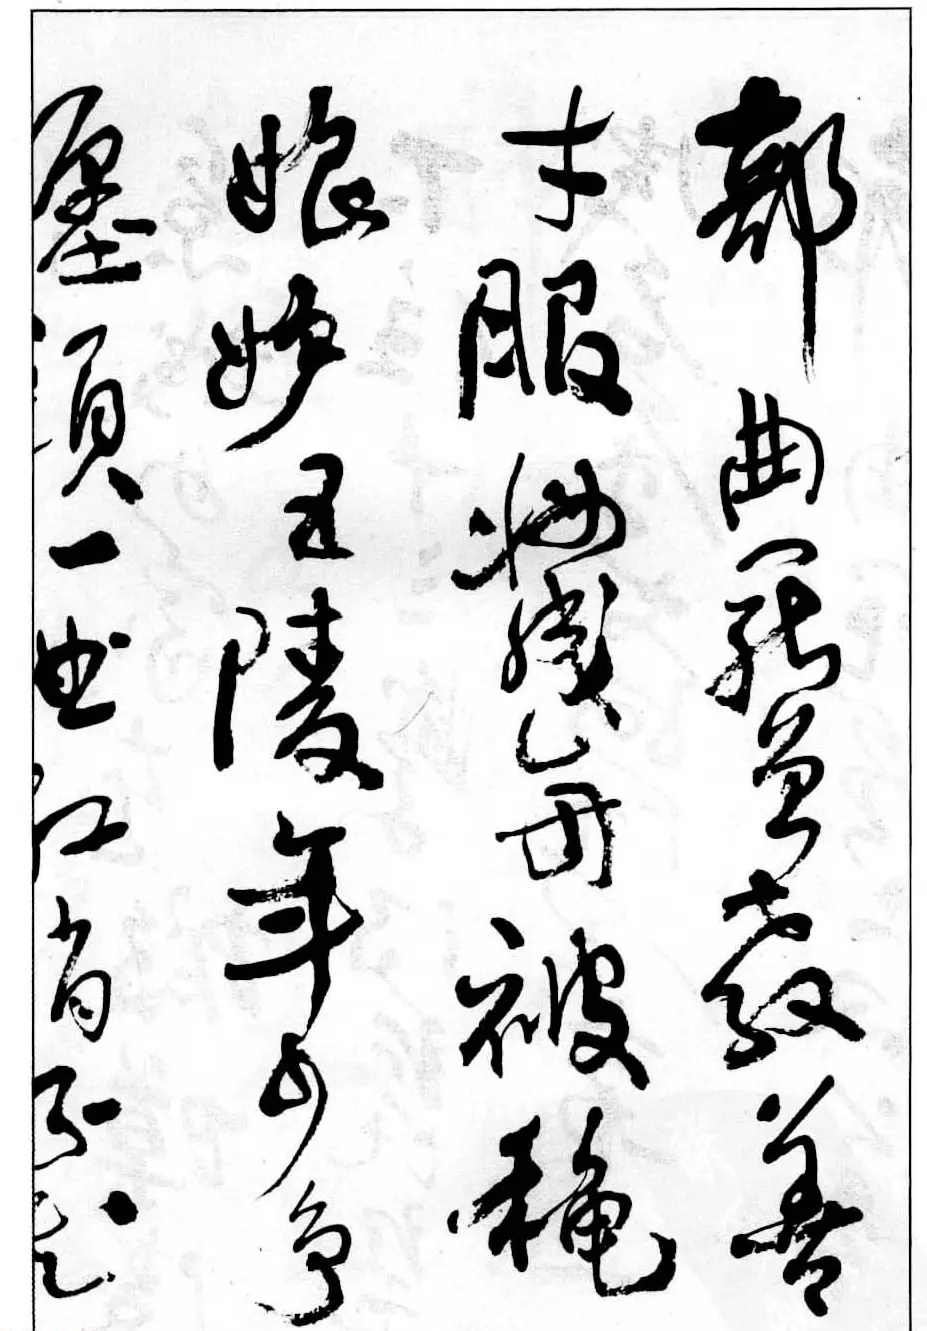 部曲罷曾教善
才服妝成每被穐
娘妒五陵年少爭
纏頭一曲紅綃不知